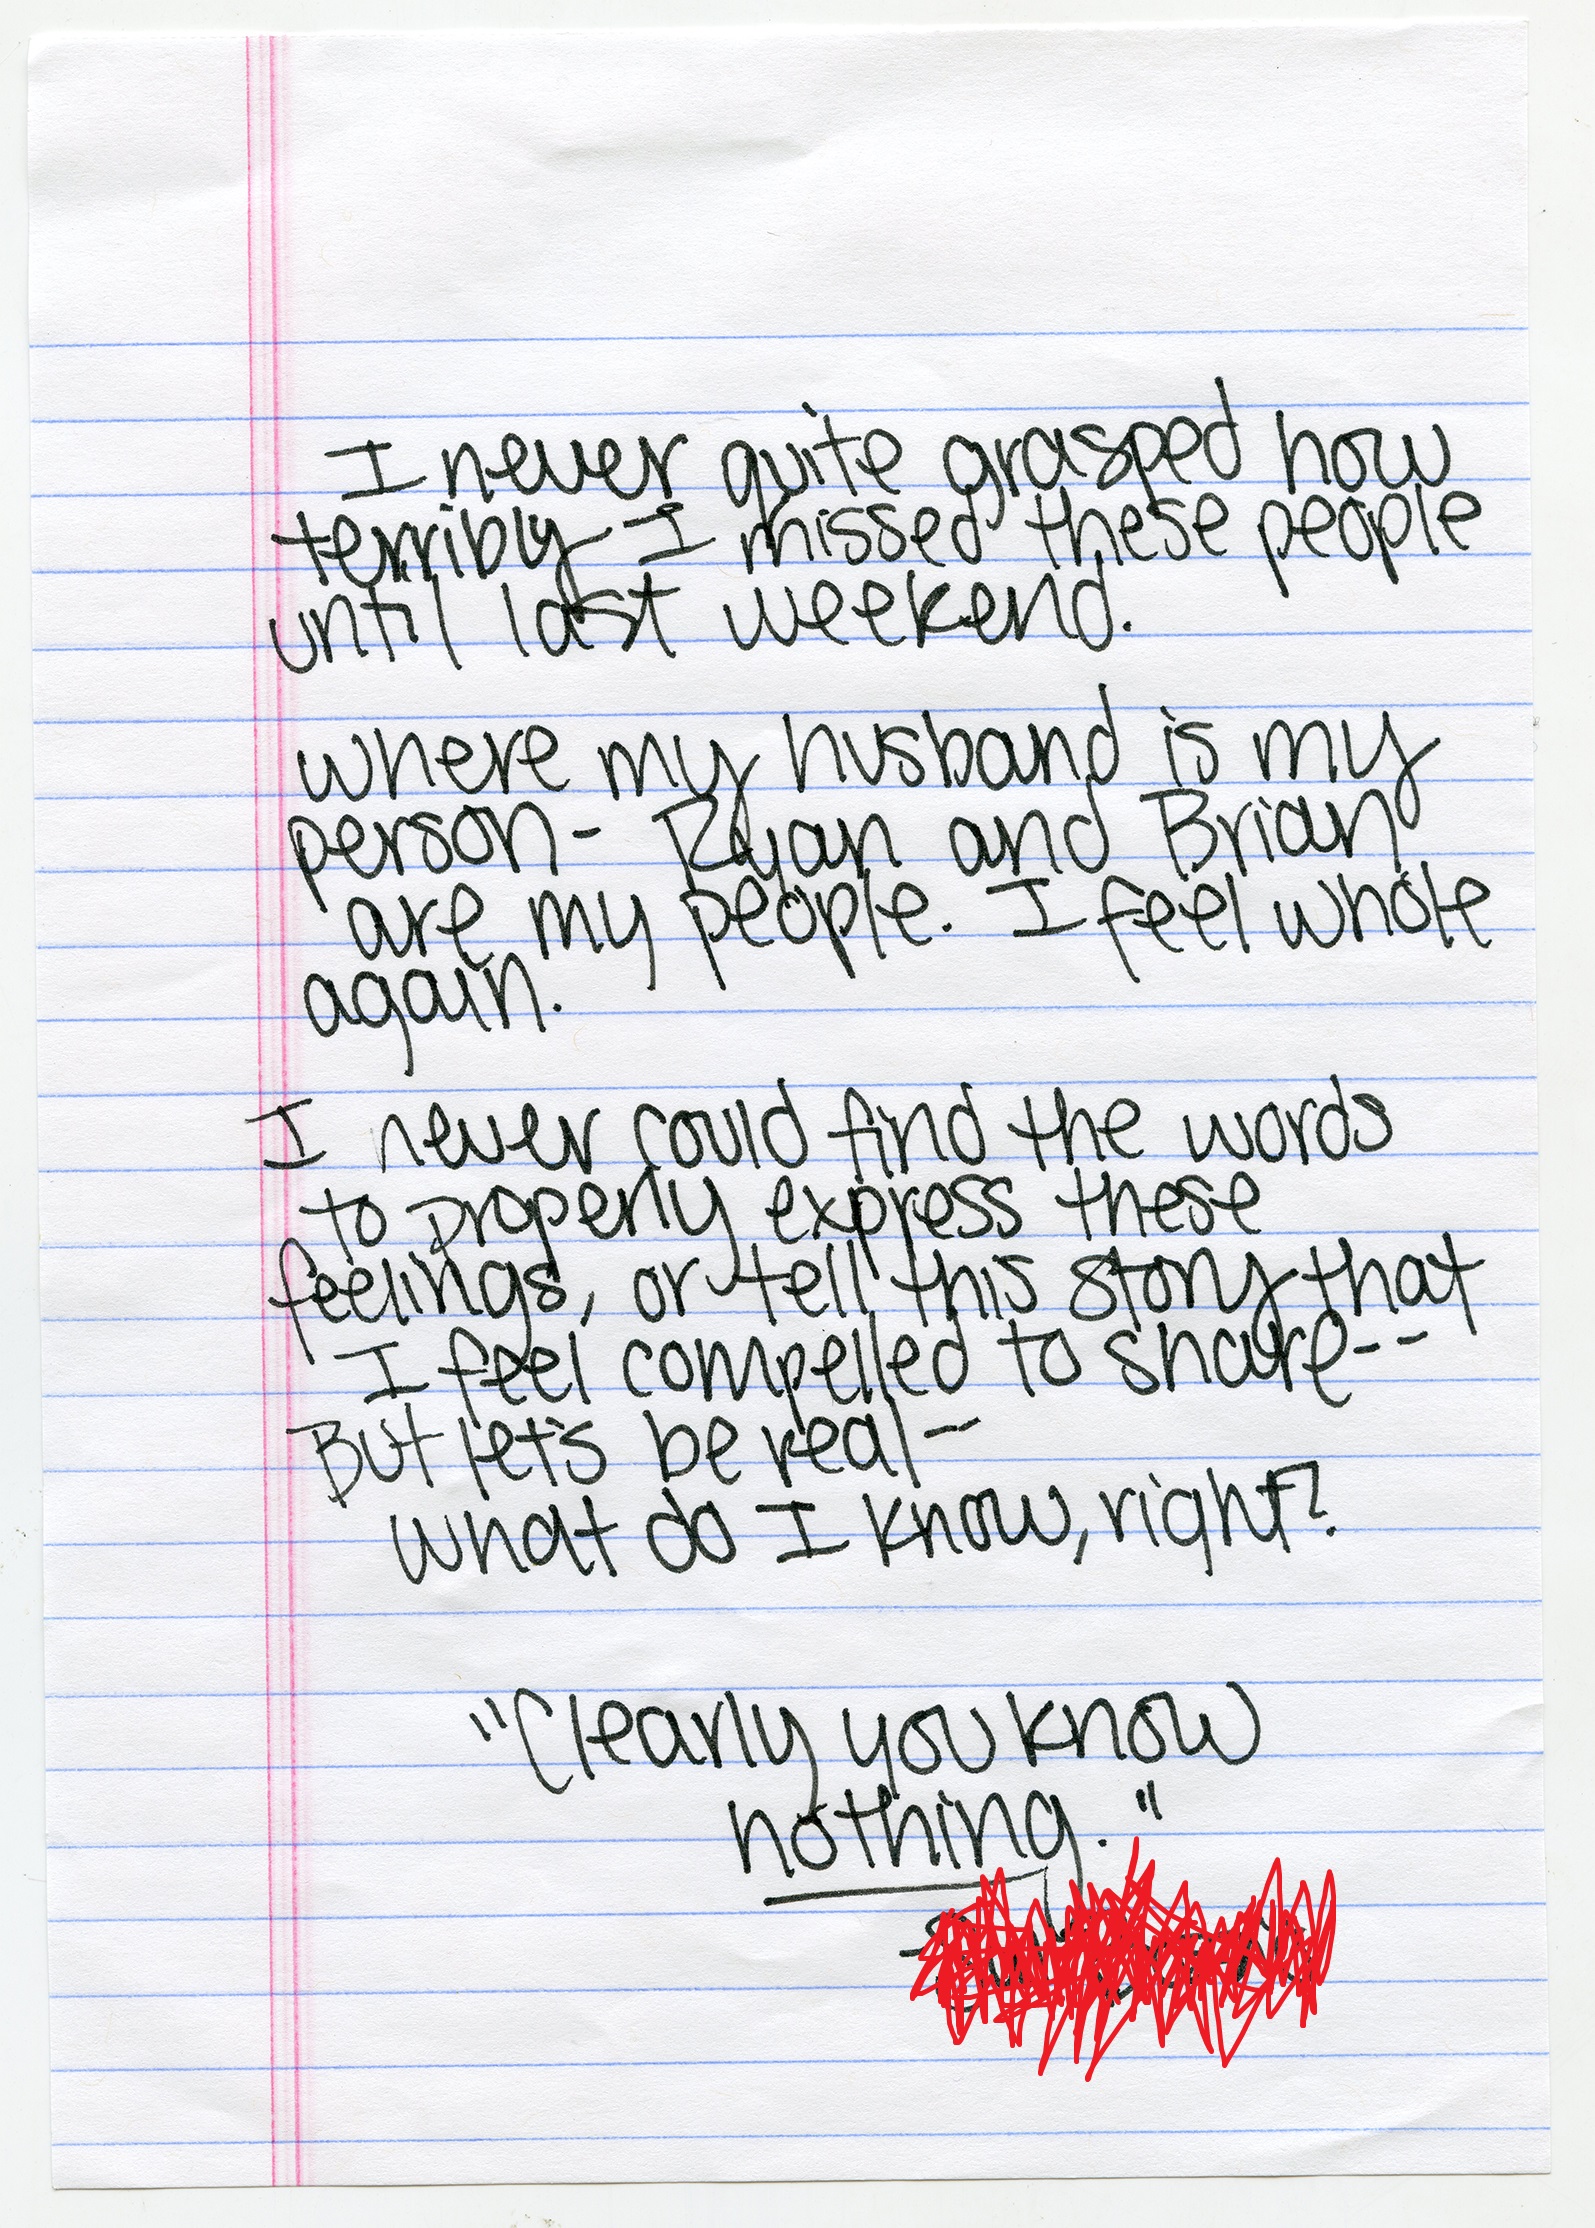 I never quite grasped how
terribly I missed these people
until last weekend.
where my husband is my
person- Ryan and Brian
are my people. I feel whole
again.
I never could find the words
to properly express these
feelings, or tell this story that
I feel compelled to share--
But let's be real--
what do I know, right?
"Clearly you know
nothing."